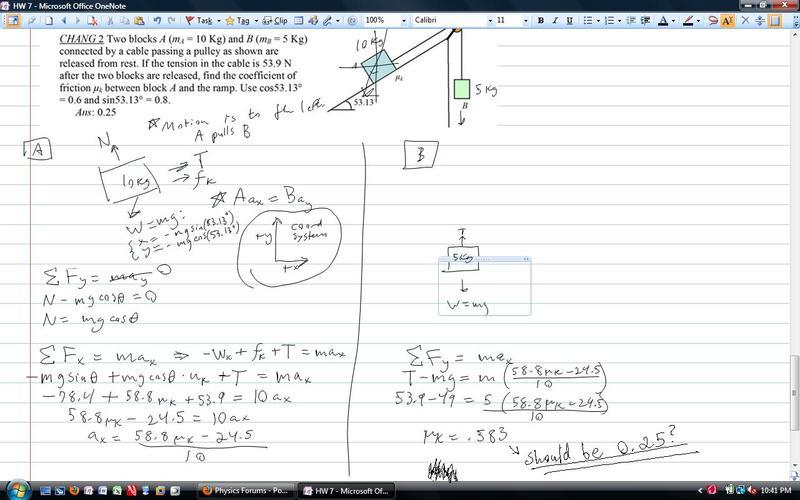 HW 7 - Microsoft Office OneNote
Task
Tag
Clip
100%
Calibri
11
B
I
U
CHANG 2 Two blocks A (mA = 10 Kg) and B (mB = 5 Kg)
connected by a cable passing a pulley as shown are
released from rest. If the tension in the cable is 53.9 N
after the two blocks are released, find the coefficient of
friction μk between block A and the ramp. Use cos53.13°
= 0.6 and sin53.13° = 0.8.
Ans: 0.25
10 Kg
A
μk
53.13°
5 Kg
B
☆ Motion is to the left
A pulls B
A
N
10 Kg
→ T
→ fK
W = mg:
{ x = - mg sin(53.13°)
{ y = - mg cos(53.13°)
☆ Aax = Bay
+y
coord
system
+x
ΣFy = may 0
N - mg cosθ = 0
N = mg cosθ
ΣFx = max ⇒ -Wx + fK + T = max
-mg sinθ + mg cosθ · uK + T = max
-78.4 + 58.8μK + 53.9 = 10ax
58.8μK - 24.5 = 10ax
ax = 58.8μK - 24.5
10
B
T
5 Kg
W = mg
ΣFy = max
T - mg = m (58.8μK - 24.5)
10
53.9 - 49 = 5 (58.8μK - 24.5)
10
μK = .583
→ should be 0.25?
Physics Forums - Po...
HW 7 - Microsoft Of...
10:41 PM